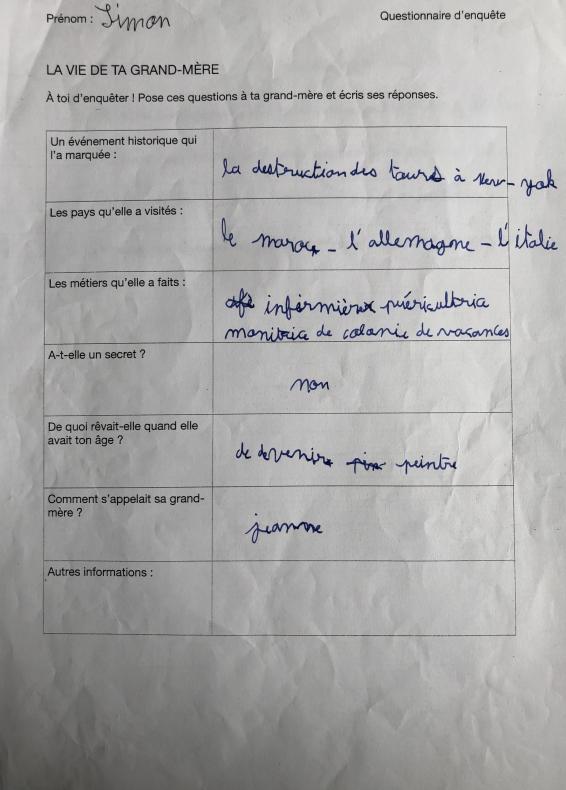 Prénom : Simon
Questionnaire d'enquête
LA VIE DE TA GRAND-MÈRE
À toi d'enquêter ! Pose ces questions à ta grand-mère et écris ses réponses.
Un événement historique qui
l'a marquée :
la destruction des tours à New-york
Les pays qu'elle a visités :
le maroc - l'allemagne - l'italie
Les métiers qu'elle a faits :
infirmière puéricultrice
monitrice de colonie de vacances
A-t-elle un secret ?
non
De quoi rêvait-elle quand elle
avait ton âge ?
de devenir peintre
Comment s'appelait sa grand-
mère ?
jeanne
Autres informations :